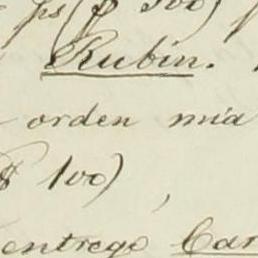 ps ($ 500)
Rubin.
orden mia
$ 100)
entrego Car